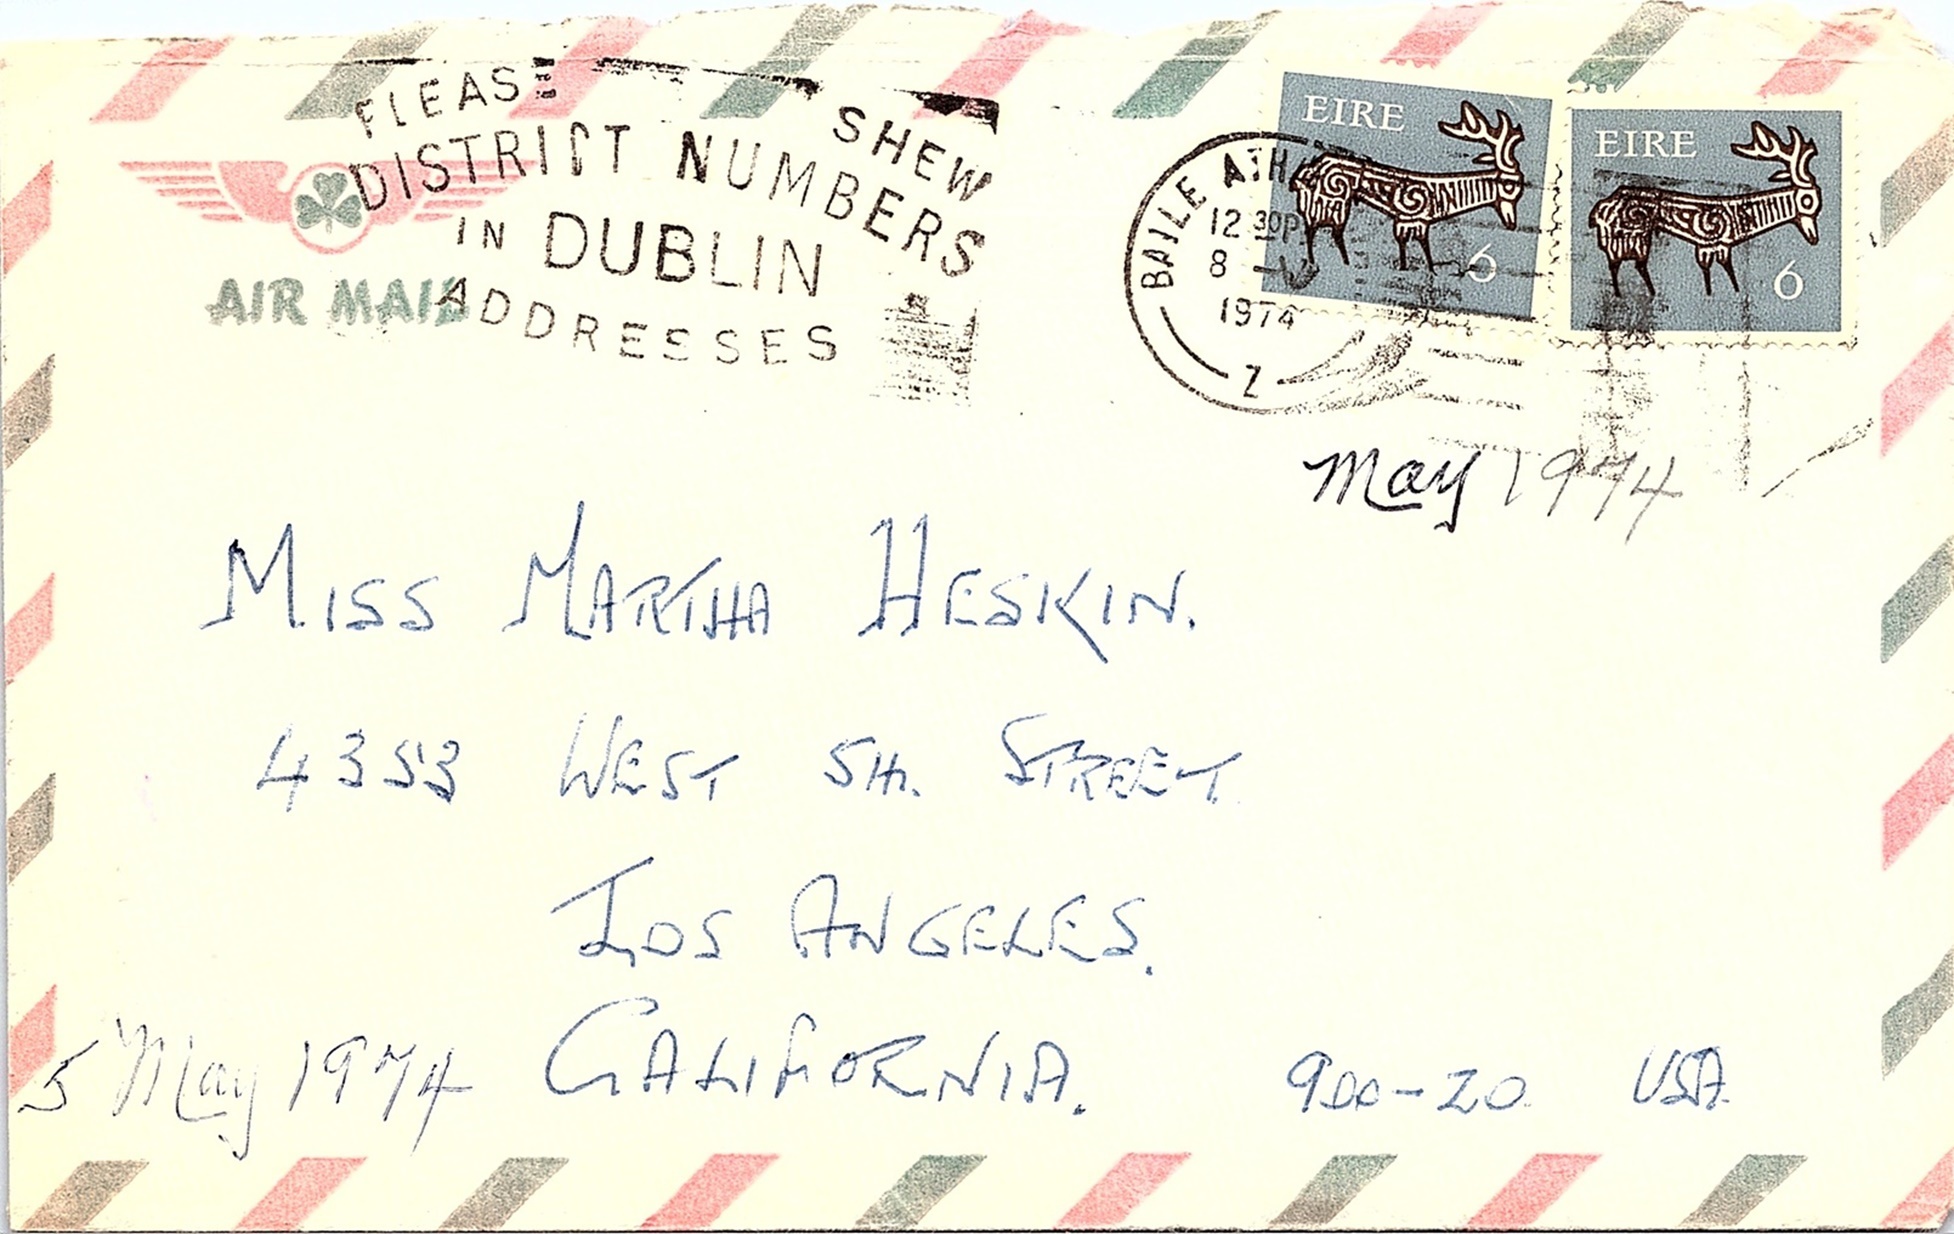 PLEASE SHEW
DISTRICT NUMBERS
IN DUBLIN
ADDRESSES
AIR MAIL
BAILE ATH
12 30P
8 - V
1974
Z
EIRE
6
EIRE
6
May 1974
MISS MARTHA HESKIN.
4353 WEST 5th. STREET.
LOS ANGELES.
CALIFORNIA. 900-20. USA.
5 May 1974